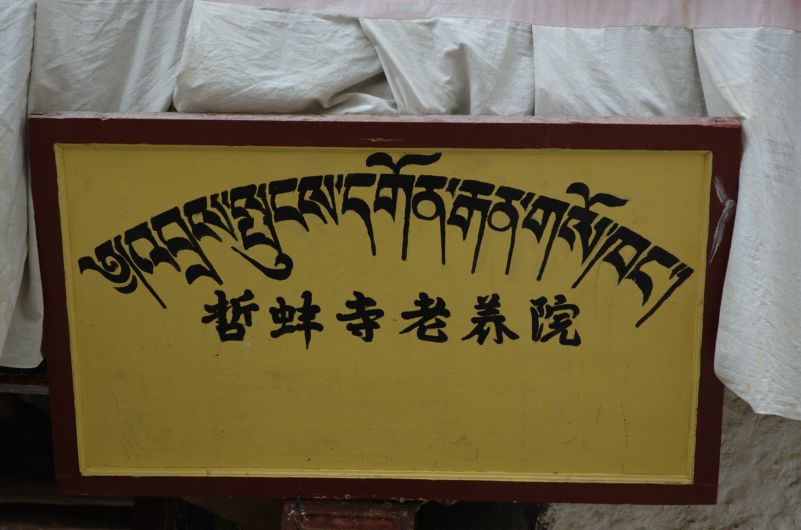 ༄༅།འབྲས་སྤུངས་དགོན་རྒན་གསོ་ཁང་།
哲蚌寺老养院